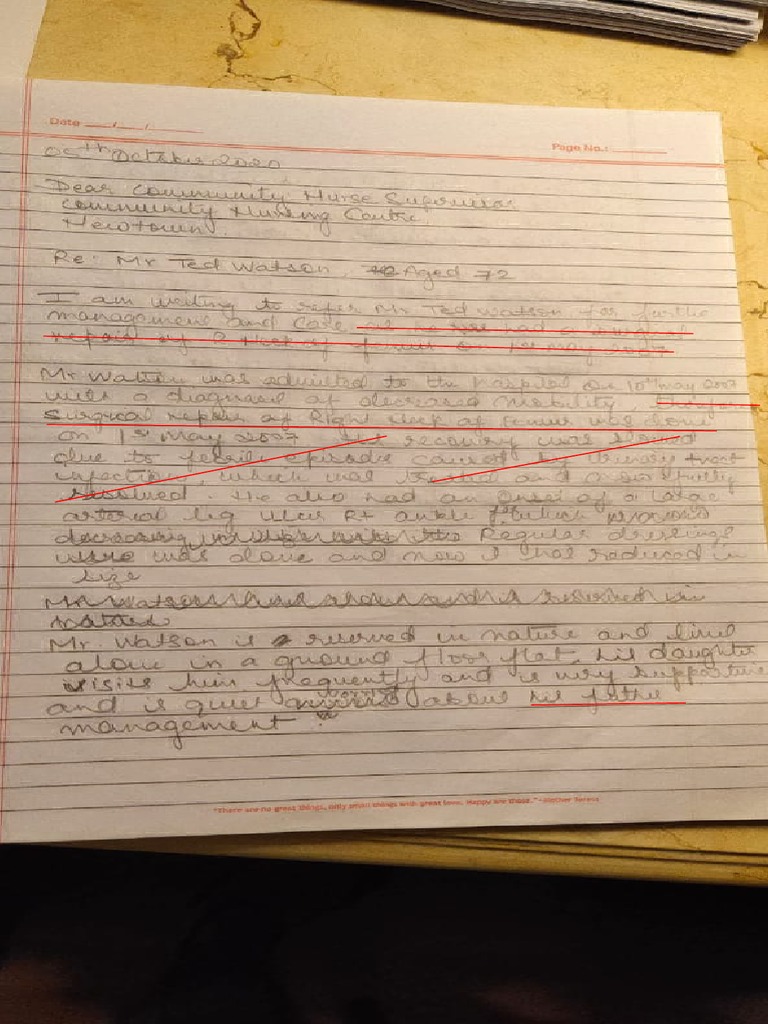 Date ___/___/______
Page No.: ______
05th October 2020
Dear Community Nurse Supervisor
Community Nursing Centre
Newtown.
Re: Mr Ted Watson, Aged 72
I am writing to refer Mr Ted Watson for furthe
management and care as he had a surgical
repair of R Neck of femur on 1st May 2007
Mr Watson was admitted to the hospital on 10th May 2007
with a diagnosis of decreased mobility, therefore
surgical repair of Right Neck of femur was done
on 1st May 2007. His recovery was slowed
due to febrile episodes caused by Urinary tract
infection, which was treated and
resolved. He also had an onset of a large
arterial leg ulcer Rt ankle
decreasing in Regular dressings
was done and now it has reduced in
size
Mr Watson lives alone and is reserved in
nature
Mr. Watson is reserved in nature and lives
alone in a ground floor flat, his daughter
visits him frequently and is very supportive
and is quiet about his futhe
management
"There are no great things, only small things with great love. Happy are those." -Mother Teresa